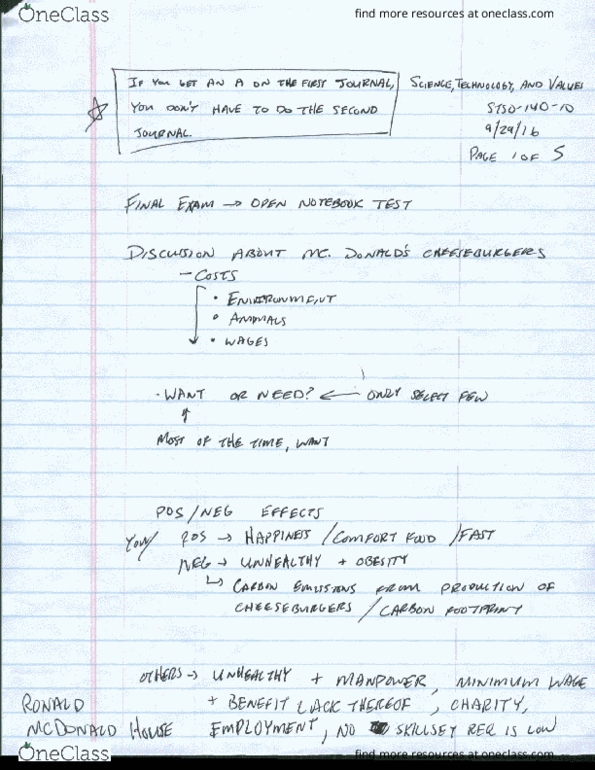 OneClass
find more resources at oneclass.com
IF YOU GET AN A ON THE FIRST JOURNAL,
YOU DON'T HAVE TO DO THE SECOND
JOURNAL.
SCIENCE, TECHNOLOGY, AND VALUES
STSO-140-10
9/29/16
PAGE 1 OF 5
FINAL EXAM → OPEN NOTEBOOK TEST
DISCUSSION ABOUT MC. DONALD'S CHEESEBURGERS
- COSTS
• ENVIRONMENT
• ANIMALS
• WAGES
• WANT OR NEED? ← ONLY SELECT FEW
↑
MOST OF THE TIME, WANT
POS/NEG EFFECTS
YOU/ POS → HAPPINESS / COMFORT FOOD / FAST
NEG → UNHEALTHY + OBESITY
↳ CARBON EMISSIONS FROM PRODUCTION OF
CHEESEBURGERS / CARBON FOOTPRINT
OTHERS → UNHEALTHY + MANPOWER, MINIMUM WAGE
+ BENEFIT LACK THEREOF, CHARITY,
RONALD
MCDONALD HOUSE EMPLOYMENT, NO SKILLSET REQ IS LOW
OneClass
find more resources at oneclass.com